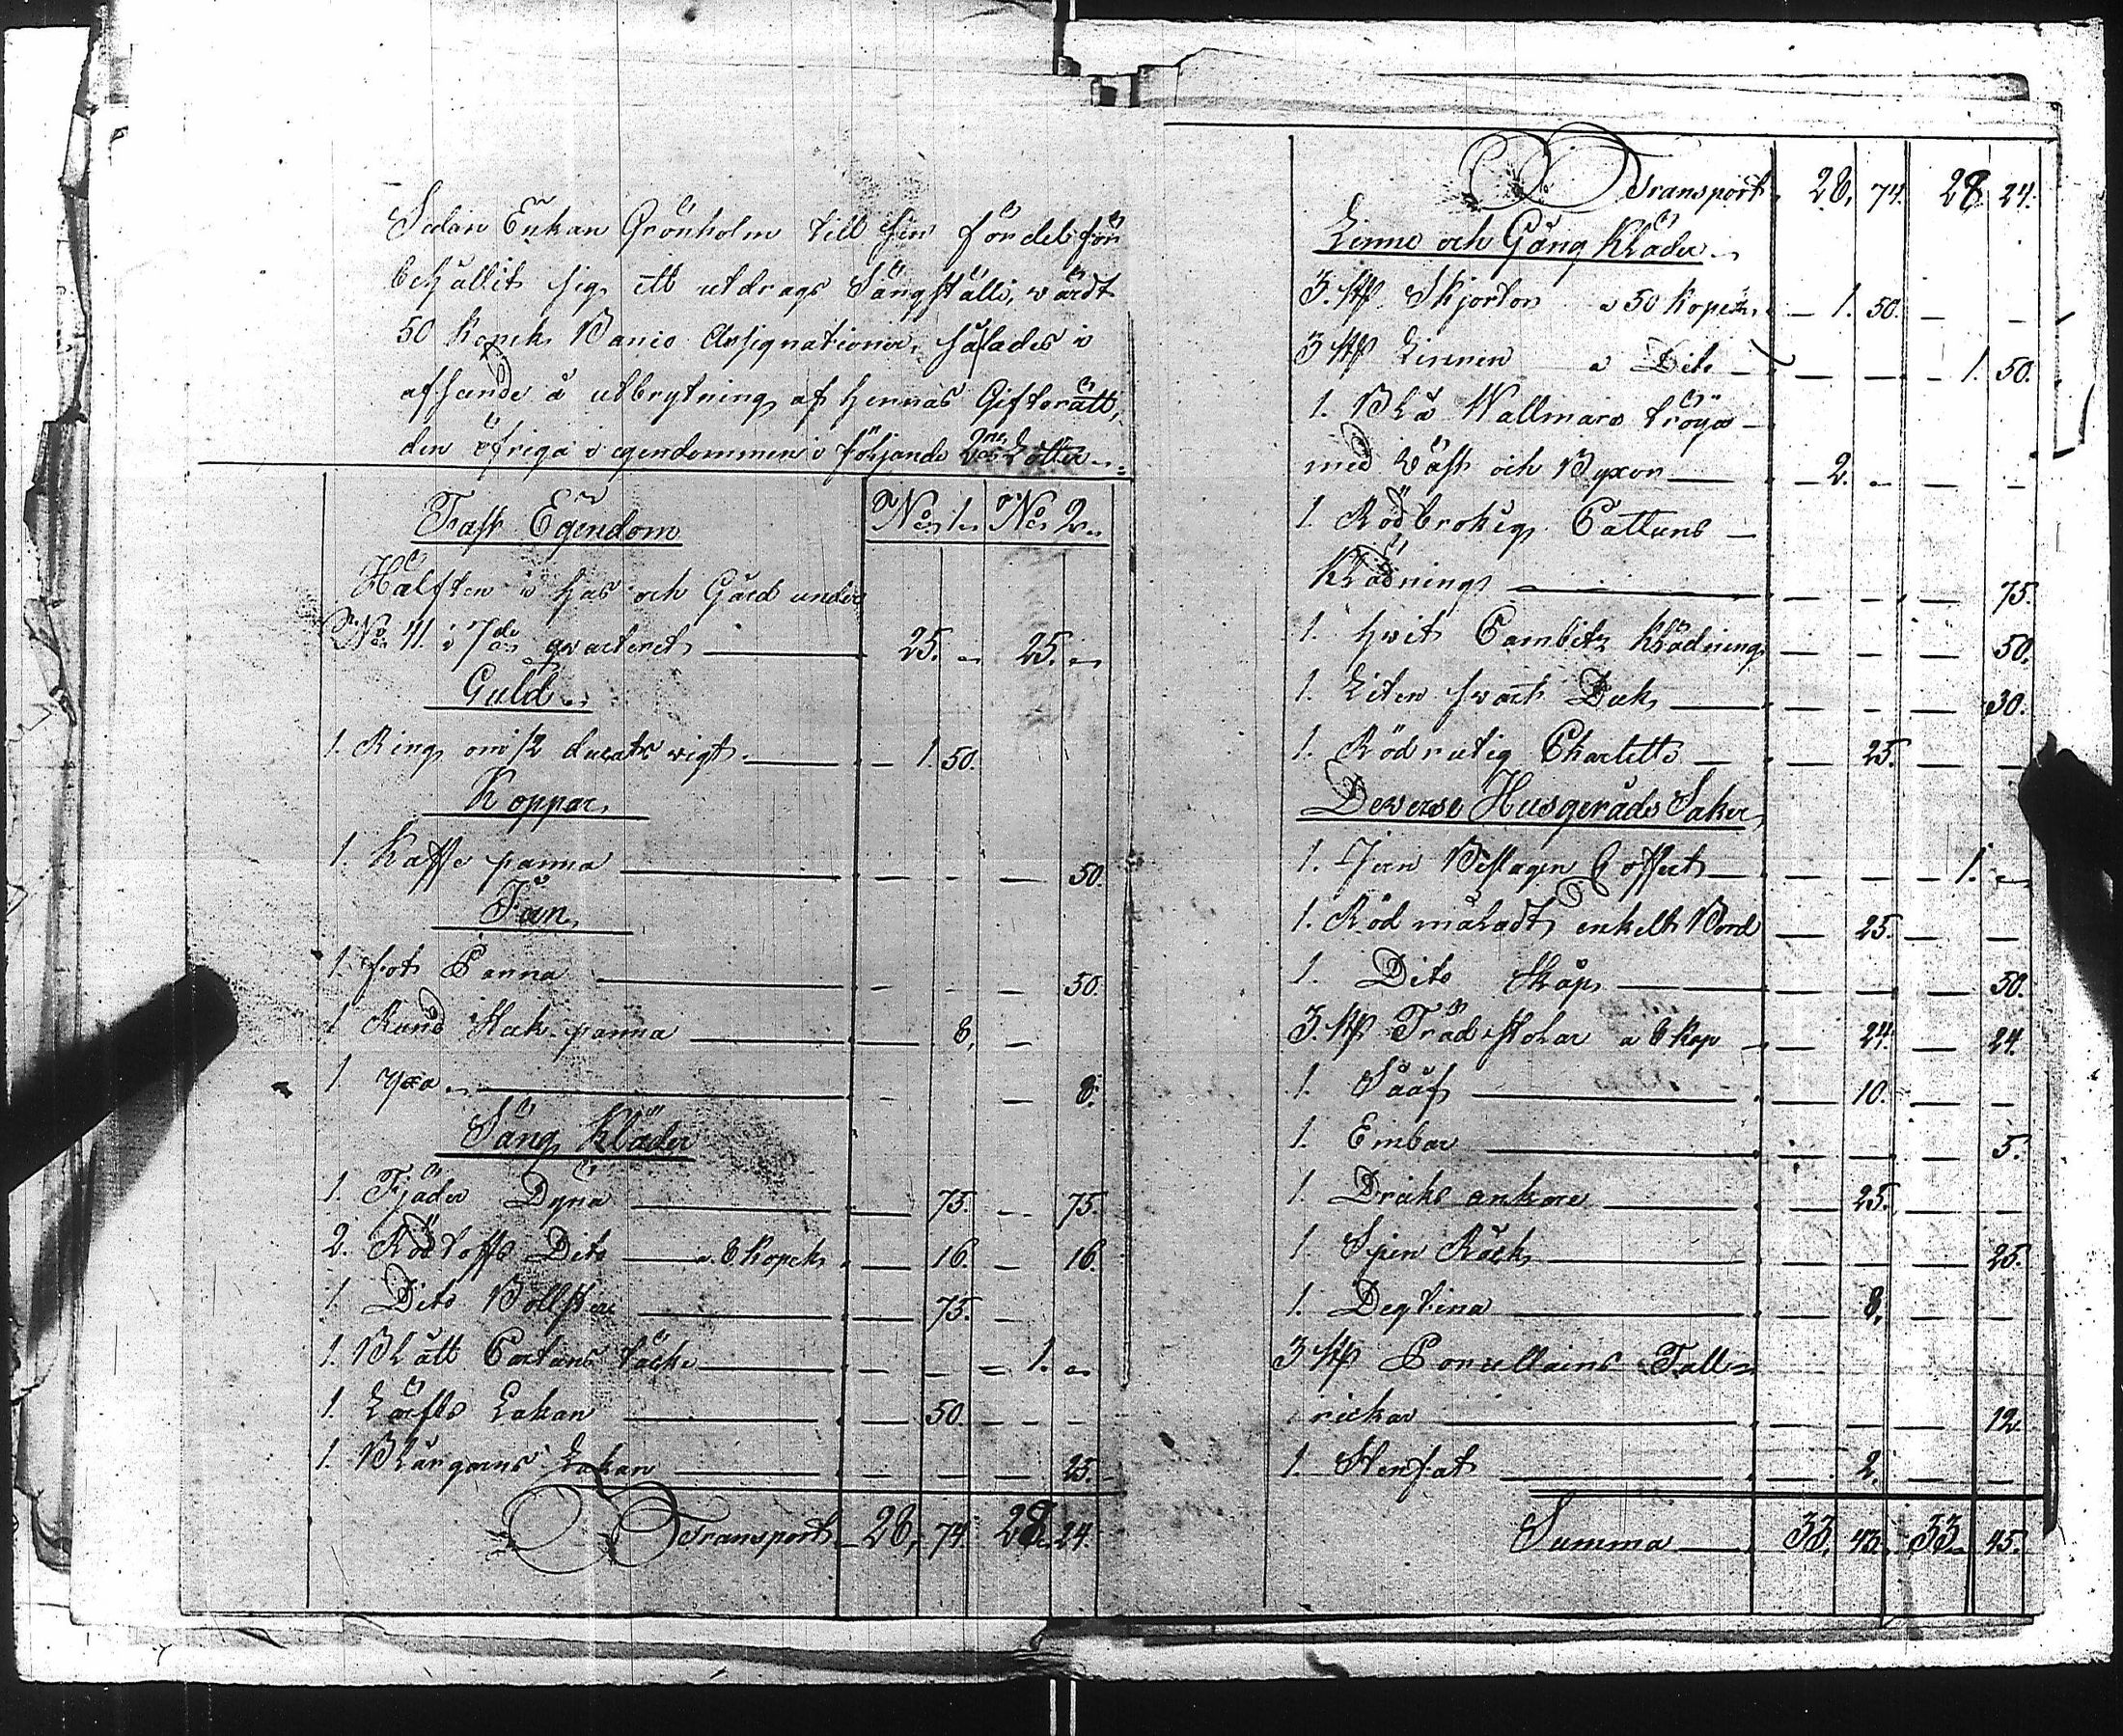 Sedan Enkan Grönholm till sin fördel för
behållit sig ett utdrags Sängställe, värdt
50 Kopek Banco Assignationer, så lades i
afseende å utbrytning af hennes Giftorätt,
den öfriga egendommen i följande 2ne Lotter
Fast Egendom No 1 No 2
Hälften i hus och Gård under
No 41. i 7de qvarteret — 25. — 25. —
Guld
1. Ring om 1/2 ducats vigt. — 1. 50.
Koppar
1. Kaffe panna — — — — 50.
Jern
1. fot Panna — — — — 50.
1 Rund Stek panna — — 8, —
1 yxa — — — 8.
Säng Kläder
1. Fjäder Dyna — — 75. — 75.
2. Dito a 8 Kopek — 16. — 16.
1 Dito Bollster — — 75. —
1. Blått Cattuns täcke — — — — 1. —
1. Lärfts Lakan — — 50. — — —
1. Blångarns Lakan — — — — 25. —
Transport 28, 74. 28. 24.
Transport 28, 74. 28 24.
Linne och Gång Kläder
3. st Skjortor a 50 Kopek — 1. 50. — —
3 st Linnen a Dito — — — — 1. 50.
1. Blå Wallmars tröya —
med Väst och Byxor — — 2. — —
1. Rödbrokig Cattuns —
Klädning — — — — 75.
1. hvit Klädning — — — 50.
1. Liten svart Duk — — — — 30.
1. Rödrutig — — 25. — —
Deverse Husgeråds Saker
1. Jern Beslagen Coffert — — — — 1. —
1. Röd måladt enkelt Bord — 25. — —
1. Dito Skåp — — — — 50.
3. st Träd stolar a 8 Kop — — 24. — 24.
1. Sååf — — 10. — —
1. Embar — — — — 5.
1. Dricks ankare — — 25. — —
1. Spin Råck — — — — 25.
1. Degtina — — 8, — —
3 st Porcellains Tall=
rickar — — — — 12
1. Stenfat — — 2. — —
Summa — 33, 43. 33. 45.